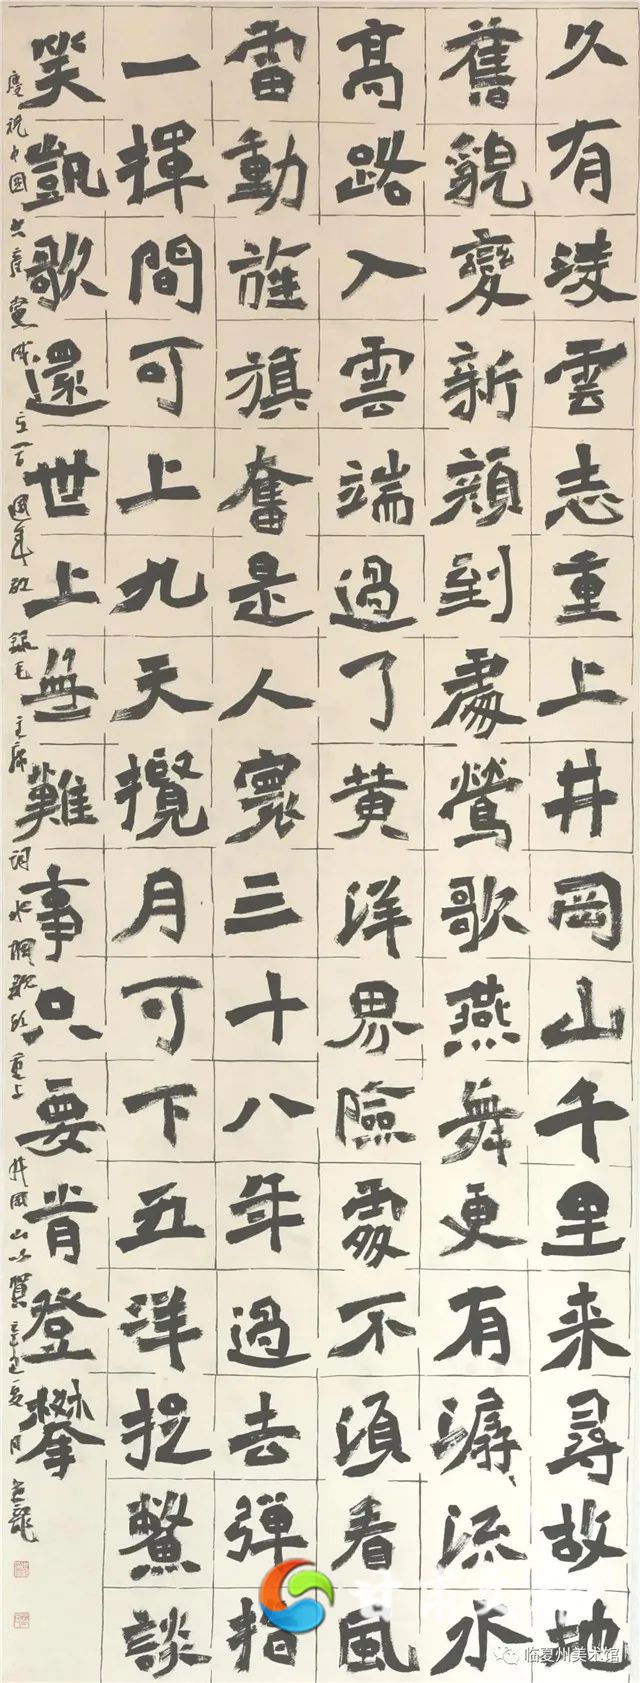 久有淩雲志重上井岡山千里来尋故地
舊貌變新顔到處鶯歌燕舞更有潺流水
髙路入雲端過了黄洋界險處不須看風
雷動旌旗奮是人寰三十八年過去彈指
一揮間可上九天攬月可下五洋捉鱉談
笑凱歌還世上無難事只要肯登攀
慶祝中国共産黨成立一百週年敬録毛主席詞水調歌頭重上井岡山以賀辛丑夏月龍
甘肃
临夏州美术馆